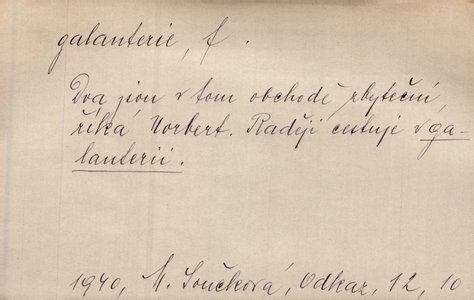 galanterie, f.
Dva jsou v tom obchodě zbyteční,
říká Norbert. Raději cestuje v ga-
lanterii.
1940, M. Součková, Odkaz, 12, 10